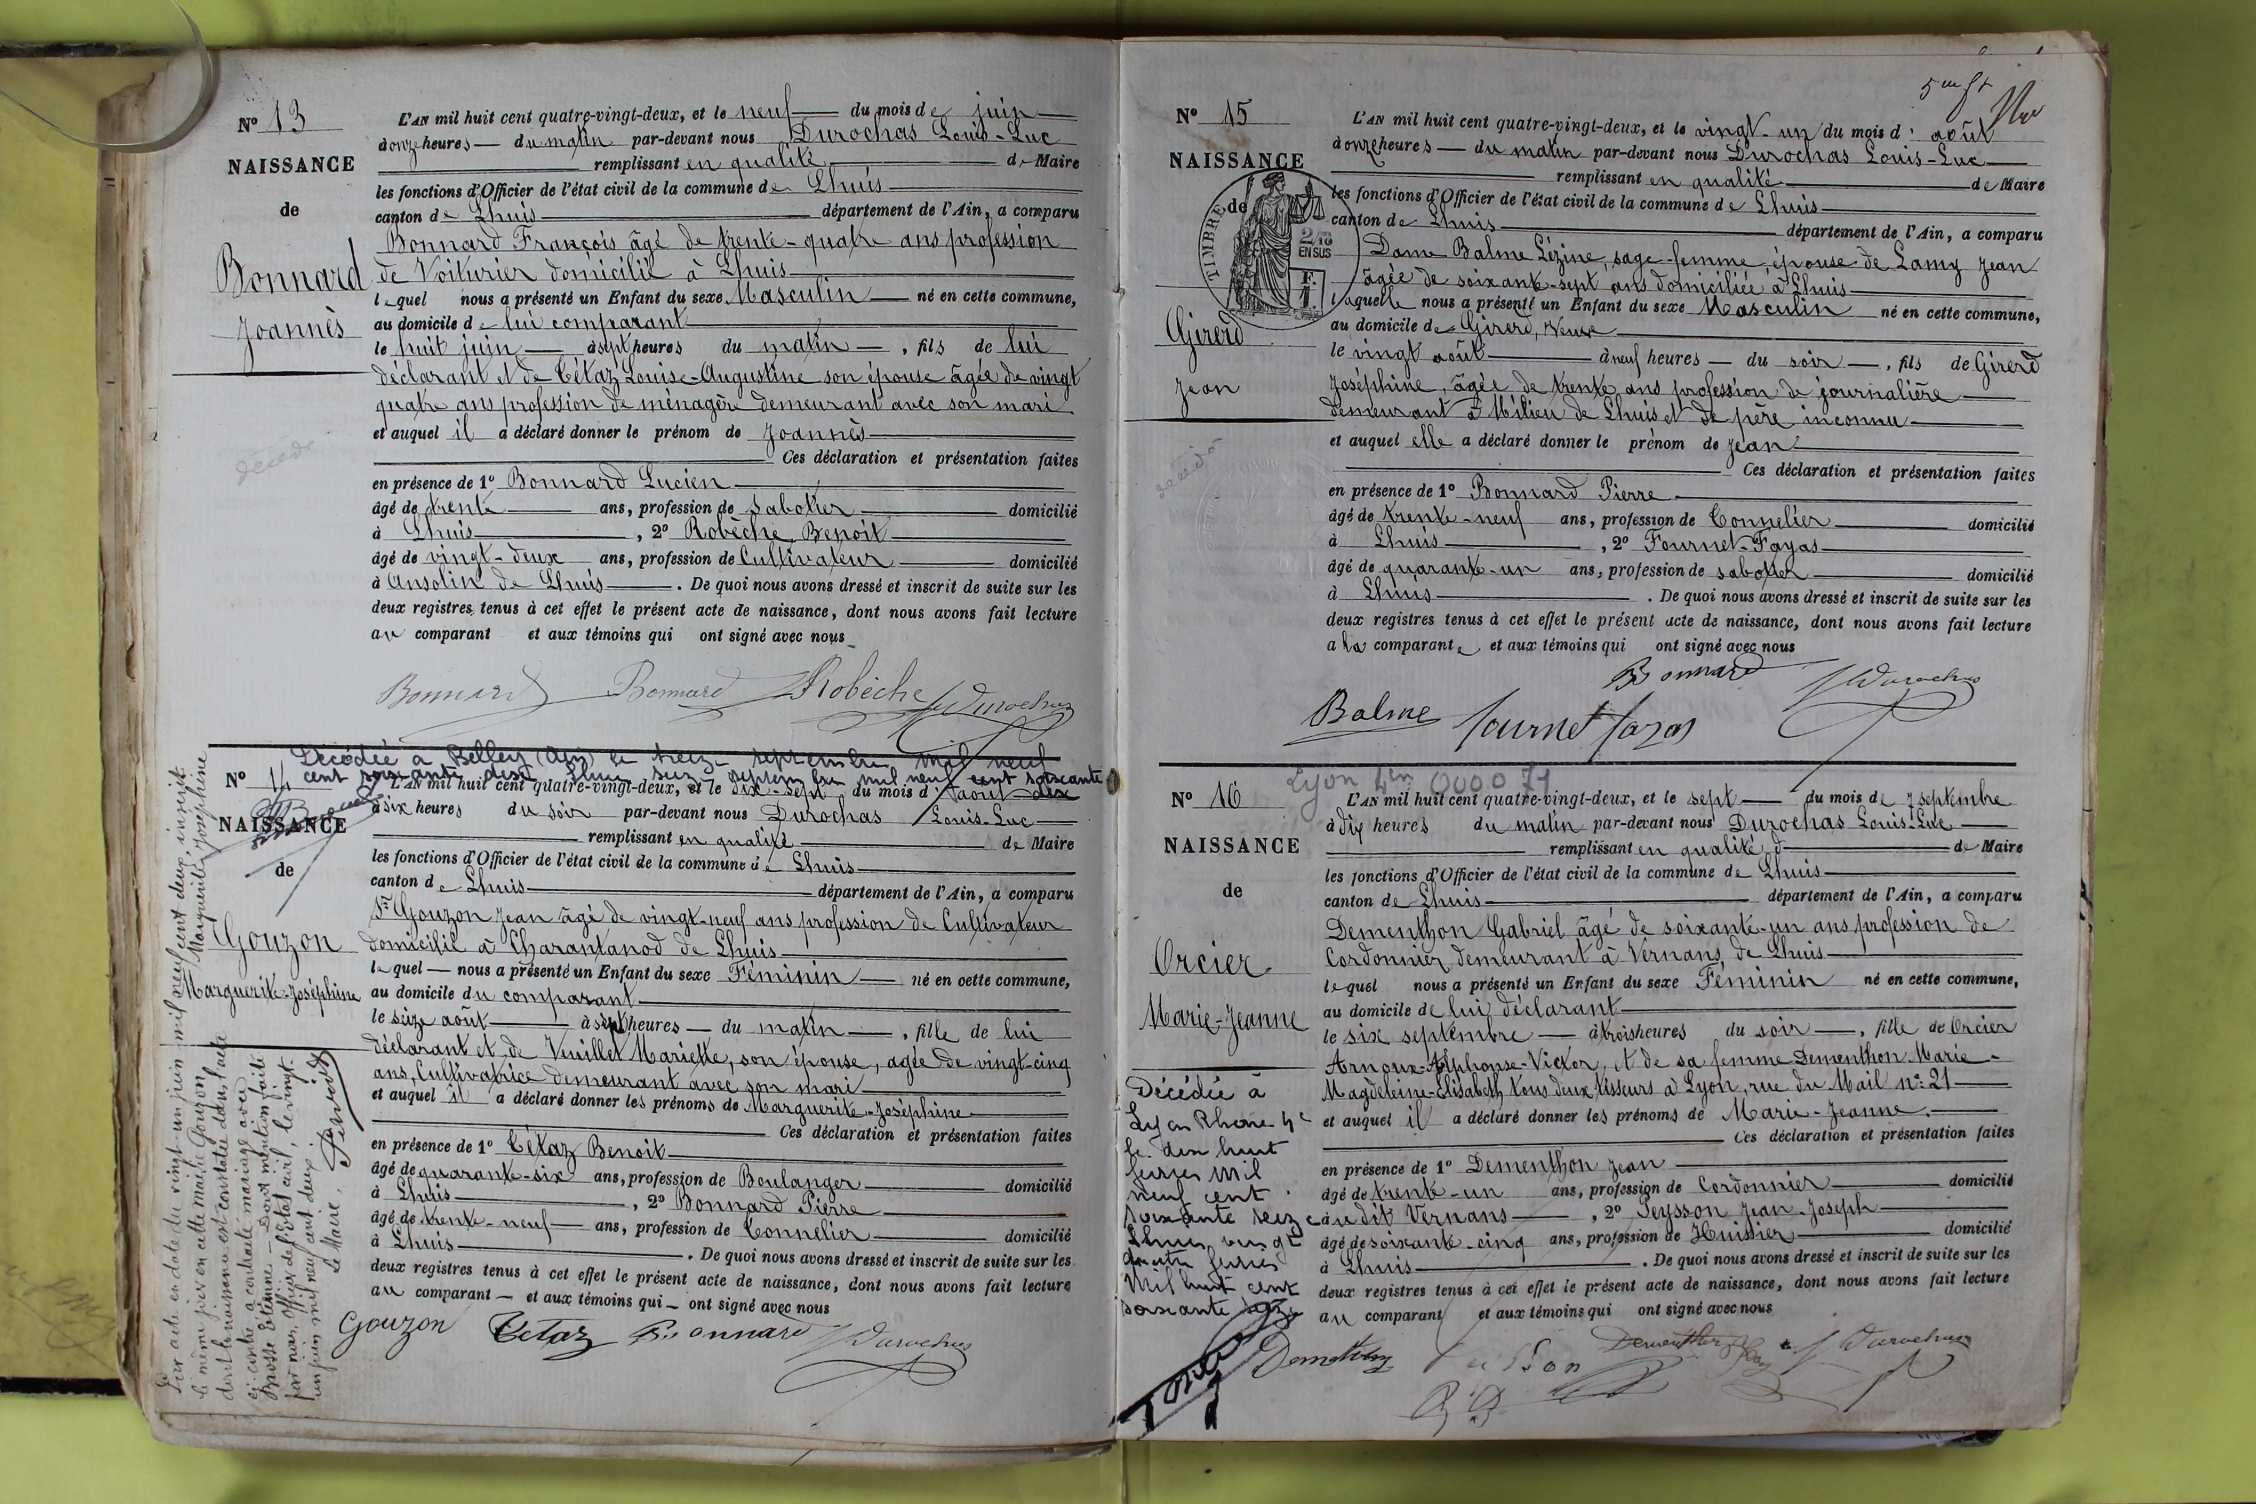 N° 13
NAISSANCE
de
Bonnard
Joannès
décédé
L'AN mil huit cent quatre-vingt-deux, et le neuf du mois de juin
à onze heures du matin par-devant nous Durochas Louis-Luc
remplissant en qualité de Maire
les fonctions d'Officier de l'état civil de la commune de Lhuis
canton de Lhuis département de l'Ain, a comparu
Bonnard François âgé de trente-quatre ans profession
de Voiturier domicilié à Lhuis
lequel nous a présenté un Enfant du sexe Masculin né en cette commune,
au domicile de lui comparant
le huit juin à sept heures du matin, fils de lui
déclarant et de Tétaz Louise-Augustine son épouse âgée de vingt
quatre ans profession de ménagère demeurant avec son mari
et auquel il a déclaré donner le prénom de Joannès
Ces déclaration et présentation faites
en présence de 1° Bonnard Lucien
âgé de trente ans, profession de sabotier domicilié
à Lhuis, 2° Robèche Benoit
âgé de vingt-deux ans, profession de Cultivateur domicilié
à Ansolin de Lhuis. De quoi nous avons dressé et inscrit de suite sur les
deux registres tenus à cet effet le présent acte de naissance, dont nous avons fait lecture
au comparant et aux témoins qui ont signé avec nous
Bonnard Bonnard Robèche Durochas
Décédée à Belley (Ain) le treize septembre mil neuf
cent soixante deux. Lhuis seize septembre mil neuf cent soixante
deux
N° 14
NAISSANCE
de
Gouzon
Marguerite-Joséphine
L'AN mil huit cent quatre-vingt-deux, et le dix-sept du mois d'août
à six heures du soir par-devant nous Durochas Louis-Luc
remplissant en qualité de Maire
les fonctions d'Officier de l'état civil de la commune de Lhuis
canton de Lhuis département de l'Ain, a comparu
Sr Gouzon Jean âgé de vingt-neuf ans profession de Cultivateur
domicilié à Charantanod de Lhuis
lequel nous a présenté un Enfant du sexe Féminin né en cette commune,
au domicile du comparant
le seize août à sept heures du matin, fille de lui
déclarant et de Vuillet Mariette, son épouse, agée de vingt-cinq
ans, Cultivatrice demeurant avec son mari
et auquel il a déclaré donner les prénoms de Marguerite-Joséphine
Ces déclaration et présentation faites
en présence de 1° Tétaz Benoit
âgé de quarante-six ans, profession de Boulanger domicilié
à Lhuis, 2° Bonnard Pierre
âgé de trente-neuf ans, profession de Tonnelier domicilié
à Lhuis. De quoi nous avons dressé et inscrit de suite sur les
deux registres tenus à cet effet le présent acte de naissance, dont nous avons fait lecture
au comparant et aux témoins qui ont signé avec nous
Gouzon Tétaz Bonnard Durochas
Par acte en date du vingt-un juin mil neuf cent deux, inscrit
le même jour en cette mairie, Gouzon Marguerite Joséphine
dont la naissance est constatée dans l'acte
ci-contre a contracté mariage avec
Brosse Etienne. Dont mention faite
par nous, officier de l'Etat civil, le vingt-
un juin mil neuf cent deux.
Le Maire,
N° 15
NAISSANCE
de
TIMBRE
2/10
EN SUS
F.
1.
Girerd
Jean
décédé
L'AN mil huit cent quatre-vingt-deux, et le vingt-un du mois d'août
à onze heures du matin par-devant nous Durochas Louis-Luc
remplissant en qualité de Maire
les fonctions d'Officier de l'état civil de la commune de Lhuis
canton de Lhuis département de l'Ain, a comparu
Dame Balme Lézine, sage-femme, épouse de Lamy Jean
âgée de soixante-sept ans domiciliée à Lhuis
laquelle nous a présenté un Enfant du sexe Masculin né en cette commune,
au domicile de Girerd, Veuve
le vingt août à neuf heures du soir, fils de Girerd
Joséphine, âgée de trente ans profession de journalière
demeurant à Milieu de Lhuis et de père inconnu
et auquel elle a déclaré donner le prénom de Jean
Ces déclaration et présentation faites
en présence de 1° Bonnard Pierre
âgé de trente-neuf ans, profession de Tonnelier domicilié
à Lhuis, 2° Fournet-Fayas
âgé de quarante-un ans, profession de sabotier domicilié
à Lhuis. De quoi nous avons dressé et inscrit de suite sur les
deux registres tenus à cet effet le présent acte de naissance, dont nous avons fait lecture
a la comparante et aux témoins qui ont signé avec nous
Bonnard Durochas
Balme fournet fayas
N° 16
Lyon 4em 000071
NAISSANCE
de
Orcier
Marie-Jeanne
L'AN mil huit cent quatre-vingt-deux, et le sept du mois de septembre
à dix heures du matin par-devant nous Durochas Louis-Luc
remplissant en qualité de Maire
les fonctions d'Officier de l'état civil de la commune de Lhuis
canton de Lhuis département de l'Ain, a comparu
Dementhon Gabriel âgé de soixante-un ans profession de
Cordonnier demeurant à Vernans de Lhuis
lequel nous a présenté un Enfant du sexe Féminin né en cette commune,
au domicile de lui déclarant
le six septembre à trois heures du soir, fille de Orcier
Arnoux-Alphonse-Victor, et de sa femme Dementhon Marie-
Magdeleine-Elisabeth tous deux tisseurs à Lyon, rue du Mail n° 21
et auquel il a déclaré donner les prénoms de Marie-Jeanne.
Ces déclaration et présentation faites
en présence de 1° Dementhon Jean
âgé de trente-un ans, profession de Cordonnier domicilié
au dit Vernans, 2° Peysson Jean-Joseph
âgé de soixante-cinq ans, profession de Huissier domicilié
à Lhuis. De quoi nous avons dressé et inscrit de suite sur les
deux registres tenus à cet effet le présent acte de naissance, dont nous avons fait lecture
au comparant et aux témoins qui ont signé avec nous
Décédée à
Lyon Rhône 4e
le dix huit
février mil
neuf cent
soixante seize
Lhuis, vingt
quatre février
Mil huit cent
soixante seize
Dementhon Peysson Dementhon Durochas